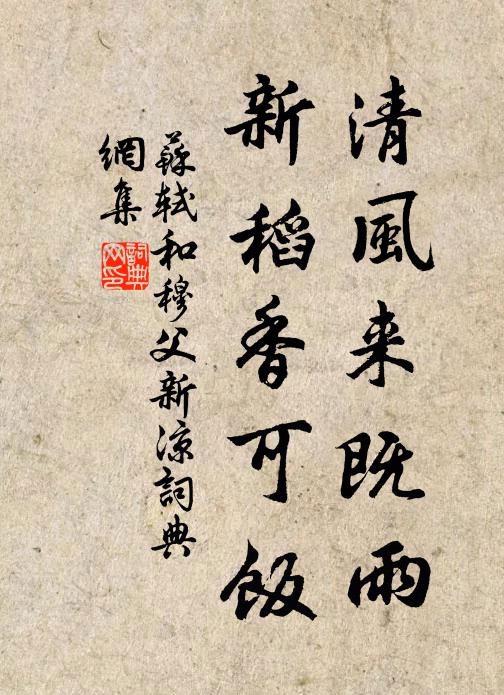 清風来既雨
新稻香可飯
蘇軾和穆父新涼詞典
網集
詞典网印